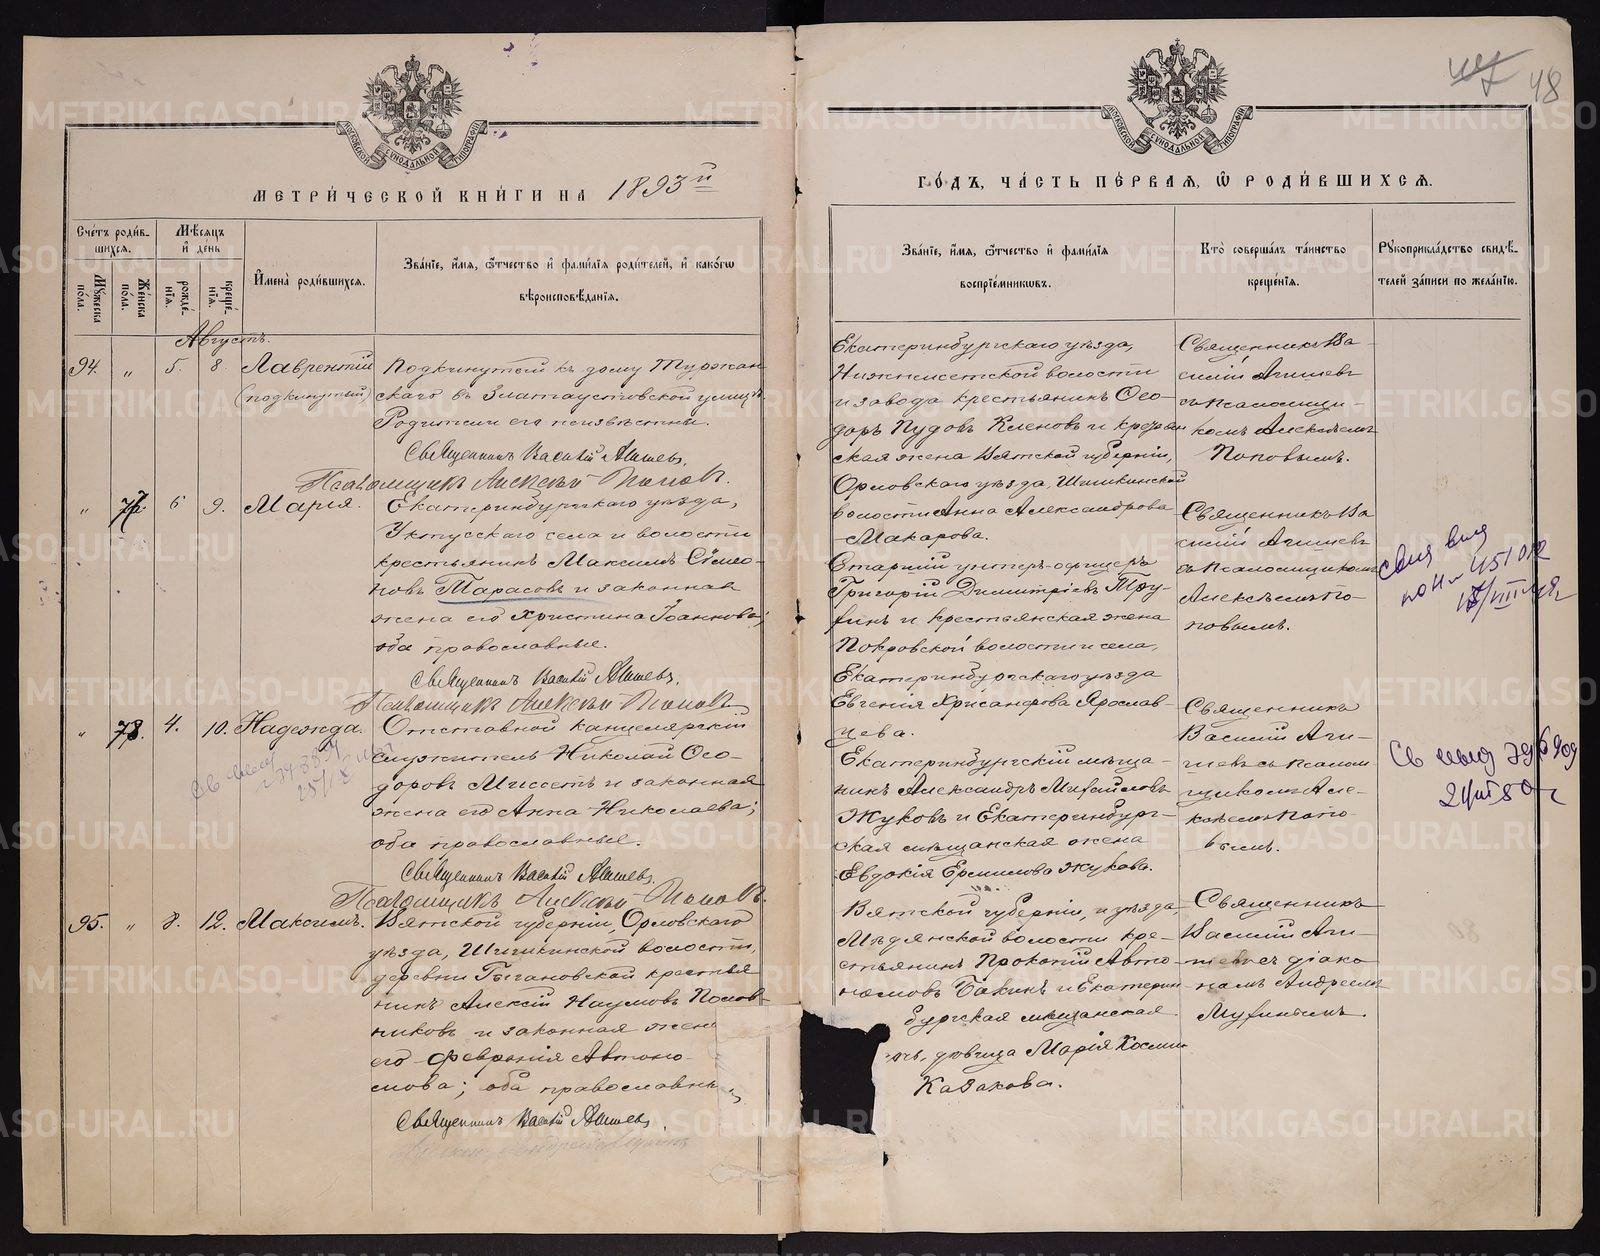 47 48
МОСКОВСКОЙ СѴНОДАЛЬНОЙ ТИПОГРАФІИ
МЕТРИ́ЧЕСКОЙ КНИ́ГИ НА 1893й
Сче́тъ роди́в-
шихся.
Мѣ́сяцъ
и҆ де́нь
Мꙋ́жеска
по́ла.
Же́нска
по́ла.
рожде́-
нїя.
креще́-
нїя.
И҆мена̀ роди́вшихся.
Зва́нїе, и҆́мя, ѻ҆́тчество и҆ фами́лїѧ роди́телей, и҆ како́гѡ
вѣроисповѣ́данїя.
Августъ.
94. „ 5. 8. Лаврентій
(подкинутый)
Подкинутый къ дому Туржан
скаго въ Златоустовской улицѣ
Родители его неизвѣстны.
Священникъ Василій Агишевъ.
Псаломщикъ Алексѣй Поповъ.
„ 77. 6 9. Марія.
Екатеринбургскаго уѣзда,
Уктусскаго села и волости
крестьянинъ Максимъ Симео-
новъ Тарасовъ и законная
жена его Христина Іоаннова;
оба православные.
Священникъ Василій Агишевъ.
Псаломщикъ Алексѣй Поповъ
„ 78. 4. 10. Надежда.
Отставной канцелярскій
служитель Николай Ѳео-
доровъ Миссетъ и законная
жена его Анна Николаева;
оба православные.
Священникъ Василій Агишевъ.
Псаломщикъ Алексѣй Поповъ.
95. „ 8. 12. Максимъ.
Вятской губерніи, Орловскаго
уѣзда, Шишкинской волости,
деревни крестья
нинъ Алексій Наумовъ Полов-
никовъ и законная жена
его Февронія Автоно-
мова; оба православны
Священникъ Василій Агишевъ.
ГО́ДЪ, ЧА́СТЬ ПЕ́РВАЯ, Ѽ РОДИ́ВШИХСЯ.
Зва́нїе, и҆́мя, ѻ҆́тчество и҆ фами́лїѧ
воспрїе́мниковъ.
Кто̀ соверша́лъ та́инство
креще́нїя.
Рꙋкоприкла́дство свидѣ́-
телей за́писи по жела́нїю.
Екатеринбургскаго уѣзда,
Нижнеисетской волости
и завода крестьянинъ Ѳео-
доръ Пудовъ Кленовъ и крестьян
ская жена Вятской губерніи,
Орловскаго уѣзда, Шишкинской
волости Анна Александрова
Макарова.
Священникъ Ва-
силій Агишевъ
съ псаломщи-
комъ Алексѣемъ
Поповымъ.
Старшій унтеръ-офицеръ
Григорій Димитріевъ Тру-
хинъ и крестьянская жена
Покровской волости и села,
Екатеринбургскаго уѣзда
Евгенія Хрисанфова Ярослав-
цева.
Священникъ Ва
силій Агишевъ
съ псаломщикомъ
Алексѣемъ По-
повымъ.
Екатеринбургскій мѣща-
нинъ Александръ Михайловъ
Жуковъ и Екатеринбург-
ская мѣщанская жена
Евдокія Ермилова Жукова.
Священникъ
Василій Аги-
шевъ съ псалом
щикомъ Але-
ксѣемъ Попо-
вымъ.
Вятской губерніи, и уѣзда,
Мѣдянской волости кре-
стьянинъ Прокопій Авто-
номовъ Бакинъ и Екатерин-
бургская мѣщанская
дочь, дѣвица Марія Косми
Казакова.
Священникъ
Василій Аги-
шевъ съ діако
номъ Андреемъ
METRIKI.GASO-URAL.RU